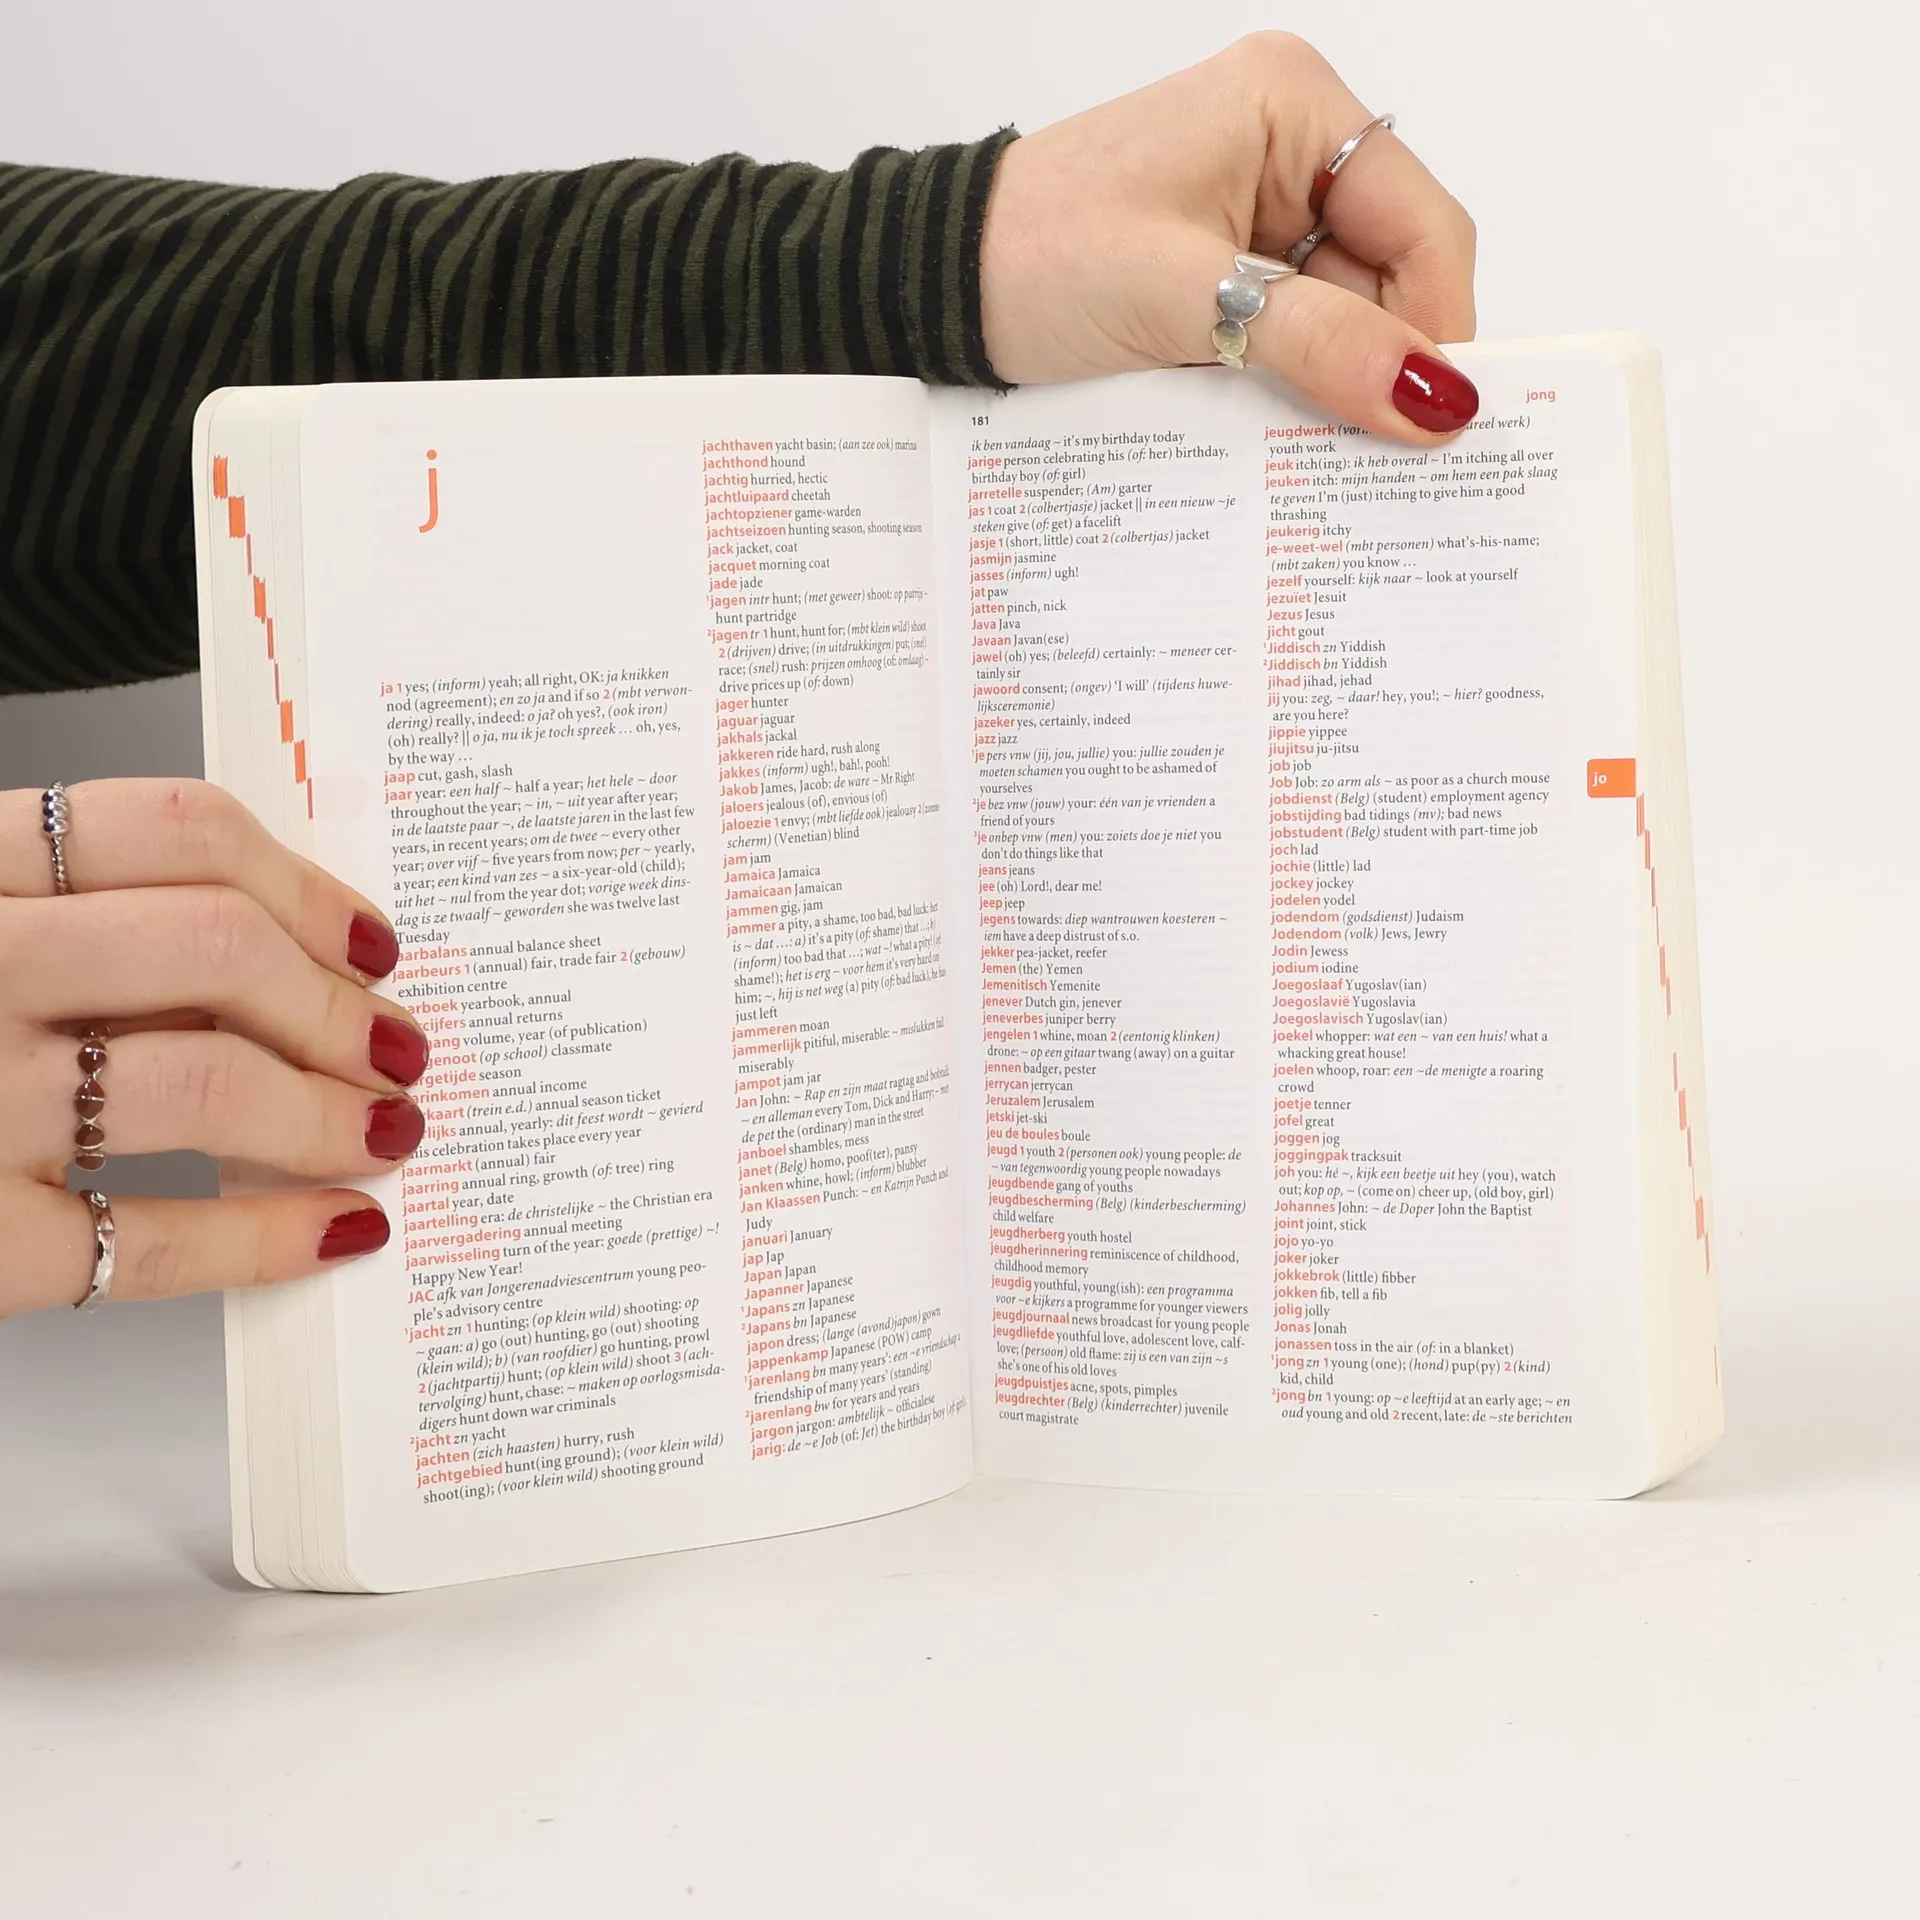 j
ja 1 yes; (inform) yeah; all right, OK: ja knikken
nod (agreement); en zo ja and if so 2 (mbt verwon-
dering) really, indeed: o ja? oh yes?, (ook iron)
(oh) really? || o ja, nu ik je toch spreek … oh, yes,
by the way …
jaap cut, gash, slash
jaar year: een half ~ half a year; het hele ~ door
throughout the year; ~ in, ~ uit year after year;
in de laatste paar ~, de laatste jaren in the last few
years, in recent years; om de twee ~ every other
year; over vijf ~ five years from now; per ~ yearly,
a year; een kind van zes ~ a six-year-old (child);
uit het ~ nul from the year dot; vorige week dins-
dag is ze twaalf ~ geworden she was twelve last
Tuesday
aarbalans annual balance sheet
jaarbeurs 1 (annual) fair, trade fair 2 (gebouw)
exhibition centre
arboek yearbook, annual
cijfers annual returns
gang volume, year (of publication)
genoot (op school) classmate
rgetijde season
rinkomen annual income
kaart (trein e.d.) annual season ticket
lijks annual, yearly: dit feest wordt ~ gevierd
his celebration takes place every year
jaarmarkt (annual) fair
jaarring annual ring, growth (of: tree) ring
jaartal year, date
jaartelling era: de christelijke ~ the Christian era
jaarvergadering annual meeting
jaarwisseling turn of the year: goede (prettige) ~!
Happy New Year!
JAC afk van Jongerenadviescentrum young peo-
ple's advisory centre
¹jacht zn 1 hunting; (op klein wild) shooting: op
~ gaan: a) go (out) hunting, go (out) shooting
(klein wild); b) (van roofdier) go hunting, prowl
2 (jachtpartij) hunt; (op klein wild) shoot 3 (ach-
tervolging) hunt, chase: ~ maken op oorlogsmisda-
digers hunt down war criminals
²jacht zn yacht
jachten (zich haasten) hurry, rush
jachtgebied hunt(ing ground); (voor klein wild)
shoot(ing); (voor klein wild) shooting ground
jachthaven yacht basin; (aan zee ook) marina
jachthond hound
jachtig hurried, hectic
jachtluipaard cheetah
jachtopziener game-warden
jachtseizoen hunting season, shooting season
jack jacket, coat
jacquet morning coat
jade jade
¹jagen intr hunt; (met geweer) shoot: op patrijs ~
hunt partridge
²jagen tr 1 hunt, hunt for; (mbt klein wild) shoot
2 (drijven) drive; (in uitdrukkingen) put; (snel)
race; (snel) rush: prijzen omhoog (of: omlaag) ~
drive prices up (of: down)
jager hunter
jaguar jaguar
jakhals jackal
jakkeren ride hard, rush along
jakkes (inform) ugh!, bah!, pooh!
Jakob James, Jacob: de ware ~ Mr Right
jaloers jealous (of), envious (of)
jaloezie 1 envy; (mbt liefde ook) jealousy 2 (zonne-
scherm) (Venetian) blind
jam jam
Jamaica Jamaica
Jamaicaan Jamaican
jammen gig, jam
jammer a pity, a shame, too bad, bad luck: het
is ~ dat …: a) it's a pity (of: shame) that …; b)
(inform) too bad that …; wat ~! what a pity! (of:
shame!); het is erg ~ voor hem it's very hard on
him; ~, hij is net weg (a) pity (of: bad luck), he has
just left
jammeren moan
jammerlijk pitiful, miserable: ~ mislukken fail
miserably
jampot jam jar
Jan John: ~ Rap en zijn maat ragtag and bobtail;
~ en alleman every Tom, Dick and Harry; ~ met
de pet the (ordinary) man in the street
janboel shambles, mess
janet (Belg) homo, poof(ter), pansy
janken whine, howl; (inform) blubber
Jan Klaassen Punch: ~ en Katrijn Punch and
Judy
januari January
jap Jap
Japan Japan
Japanner Japanese
¹Japans zn Japanese
²Japans bn Japanese
japon dress; (lange (avond)japon) gown
jappenkamp Japanese (POW) camp
¹jarenlang bn many years': een ~e vriendschap a
friendship of many years' (standing)
²jarenlang bw for years and years
jargon jargon: ambtelijk ~ officialese
jarig: de ~e Job (of: Jet) the birthday boy (of: girl);
181
ik ben vandaag ~ it's my birthday today
jarige person celebrating his (of: her) birthday,
birthday boy (of: girl)
jarretelle suspender; (Am) garter
jas 1 coat 2 (colbertjasje) jacket || in een nieuw ~je
steken give (of: get) a facelift
jasje 1 (short, little) coat 2 (colbertjas) jacket
jasmijn jasmine
jasses (inform) ugh!
jat paw
jatten pinch, nick
Java Java
Javaan Javan(ese)
jawel (oh) yes; (beleefd) certainly: ~ meneer cer-
tainly sir
jawoord consent; (ongev) 'I will' (tijdens huwe-
lijksceremonie)
jazeker yes, certainly, indeed
jazz jazz
¹je pers vnw (jij, jou, jullie) you: jullie zouden je
moeten schamen you ought to be ashamed of
yourselves
²je bez vnw (jouw) your: één van je vrienden a
friend of yours
³je onbep vnw (men) you: zoiets doe je niet you
don't do things like that
jeans jeans
jee (oh) Lord!, dear me!
jeep jeep
jegens towards: diep wantrouwen koesteren ~
iem have a deep distrust of s.o.
jekker pea-jacket, reefer
Jemen (the) Yemen
Jemenitisch Yemenite
jenever Dutch gin, jenever
jeneverbes juniper berry
jengelen 1 whine, moan 2 (eentonig klinken)
drone: ~ op een gitaar twang (away) on a guitar
jennen badger, pester
jerrycan jerrycan
Jeruzalem Jerusalem
jetski jet-ski
jeu de boules boule
jeugd 1 youth 2 (personen ook) young people: de
~ van tegenwoordig young people nowadays
jeugdbende gang of youths
jeugdbescherming (Belg) (kinderbescherming)
child welfare
jeugdherberg youth hostel
jeugdherinnering reminiscence of childhood,
childhood memory
jeugdig youthful, young(ish): een programma
voor ~e kijkers a programme for younger viewers
jeugdjournaal news broadcast for young people
jeugdliefde youthful love, adolescent love, calf-
love; (persoon) old flame: zij is een van zijn ~s
she's one of his old loves
jeugdpuistjes acne, spots, pimples
jeugdrechter (Belg) (kinderrechter) juvenile
court magistrate
jong
jeugdwerk (vor areel werk)
youth work
jeuk itch(ing): ik heb overal ~ I'm itching all over
jeuken itch: mijn handen ~ om hem een pak slaag
te geven I'm (just) itching to give him a good
thrashing
jeukerig itchy
je-weet-wel (mbt personen) what's-his-name;
(mbt zaken) you know …
jezelf yourself: kijk naar ~ look at yourself
jezuïet Jesuit
Jezus Jesus
jicht gout
¹Jiddisch zn Yiddish
²Jiddisch bn Yiddish
jihad jihad, jehad
jij you: zeg, ~ daar! hey, you!; ~ hier? goodness,
are you here?
jippie yippee
jiujitsu ju-jitsu
job job
Job Job: zo arm als ~ as poor as a church mouse
jobdienst (Belg) (student) employment agency
jobstijding bad tidings (mv); bad news
jobstudent (Belg) student with part-time job
joch lad
jochie (little) lad
jockey jockey
jodelen yodel
jodendom (godsdienst) Judaism
Jodendom (volk) Jews, Jewry
Jodin Jewess
jodium iodine
Joegoslaaf Yugoslav(ian)
Joegoslavië Yugoslavia
Joegoslavisch Yugoslav(ian)
joekel whopper: wat een ~ van een huis! what a
whacking great house!
joelen whoop, roar: een ~de menigte a roaring
crowd
joetje tenner
jofel great
joggen jog
joggingpak tracksuit
joh you: hé ~, kijk een beetje uit hey (you), watch
out; kop op, ~ (come on) cheer up, (old boy, girl)
Johannes John: ~ de Doper John the Baptist
joint joint, stick
jojo yo-yo
joker joker
jokkebrok (little) fibber
jokken fib, tell a fib
jolig jolly
Jonas Jonah
jonassen toss in the air (of: in a blanket)
¹jong zn 1 young (one); (hond) pup(py) 2 (kind)
kid, child
²jong bn 1 young: op ~e leeftijd at an early age; ~ en
oud young and old 2 recent, late: de ~ste berichten
jo